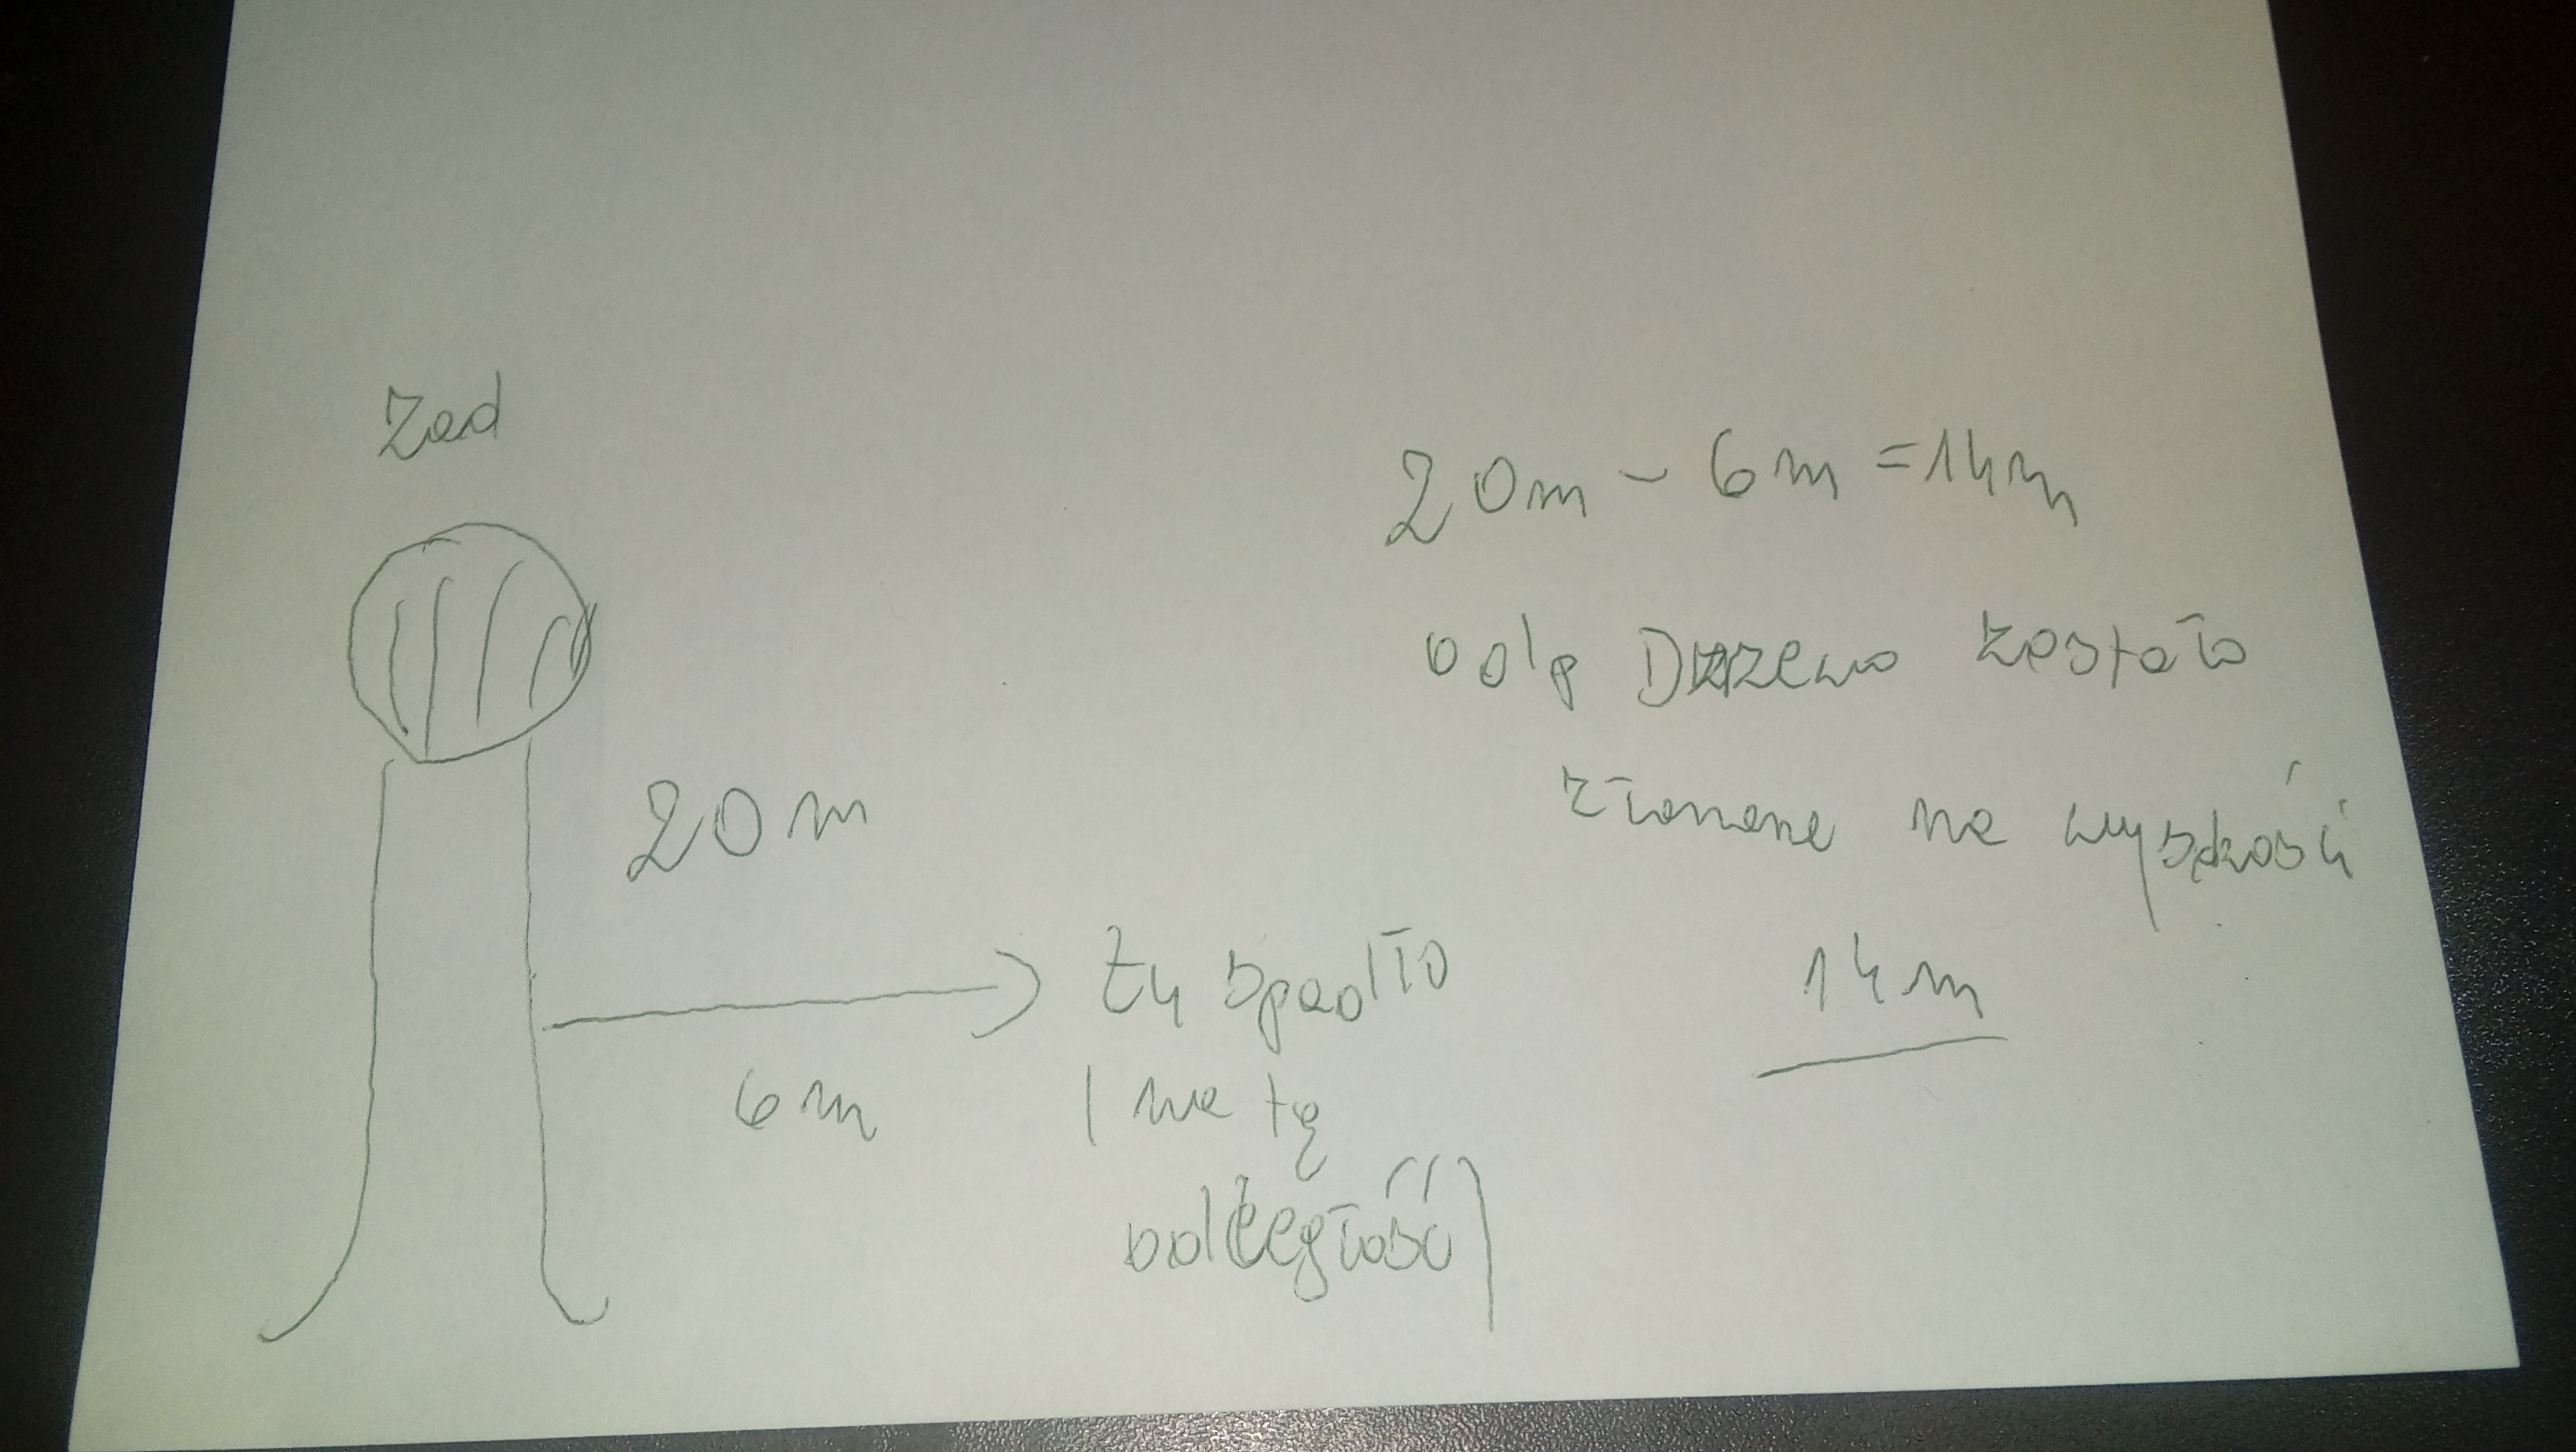 Zad
20 m
6 m
tu spadło
( na tę
odległość)
20m - 6m = 14m
odp Drzewo zostało
złamane na wysokości
14 m